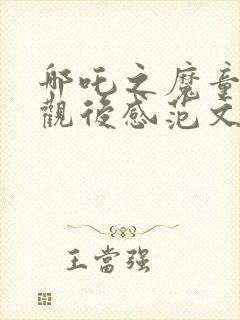 哪吒之魔童
觀後感范文
王當强